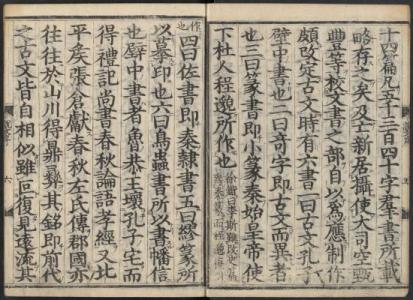 十四篇凡五千三百四十字羣書所載
略存之矣及亡新居攝使大司空甄
豐等校文書之部自以爲應制作
頗改定古文時有六書一曰古文孔子
壁中書也二曰奇字即古文而異者
也三曰篆書即小篆秦始皇帝使
下杜人程邈所作也徐鍇曰李斯雖改史篇爲秦篆而程邈
作也四曰佐書即秦隷書五曰繆篆所
以摹印也六曰鳥蟲書所以書幡信
也壁中書者魯恭王壞孔子宅而
得禮記尚書春秋論語孝經又北
平矦張倉獻春秋左氏傳郡國亦
往往於山川得鼎彝其銘即前代
之古文皆自相似雖叵復見遠流其
六